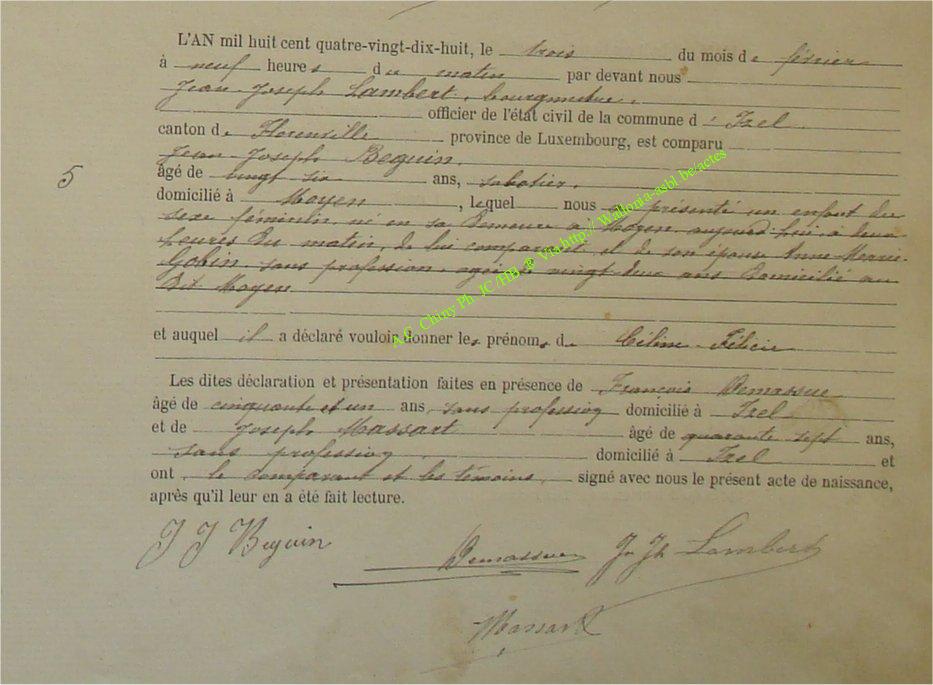 L'AN mil huit cent quatre-vingt-dix-huit, le trois du mois de février
à neuf heures du matin par devant nous
Jean-Joseph Lambert, bourgmestre,
officier de l'état civil de la commune d'Izel
canton de Florenville province de Luxembourg, est comparu
Jean-Joseph Beguin,
5
âgé de vingt six ans, sabotier,
domicilié à Moyen, lequel nous a présenté un enfant du
sexe féminin né en sa demeure à Moyen, aujourd'hui à deux
heures du matin, de lui comparant et de son épouse Anne-Marie
Gobin, sans profession, agée de vingt deux ans domicilié au
dit Moyen
et auquel il a déclaré vouloir donner les prénoms de Céline-Félicie
Les dites déclaration et présentation faites en présence de François Demassue
âgé de cinquante et un ans, sans profession domicilié à Izel
et de Joseph Massart âgé de quarante sept ans,
sans profession domicilié à Izel et
ont, le comparant et les témoins, signé avec nous le présent acte de naissance,
après qu'il leur en a été fait lecture.
J J Beguin Demassue Jn Jh Lambert
Massart
A.G. Chiny Ph. JC/HB @ Vra http:// Wallonia-asbl be/actes